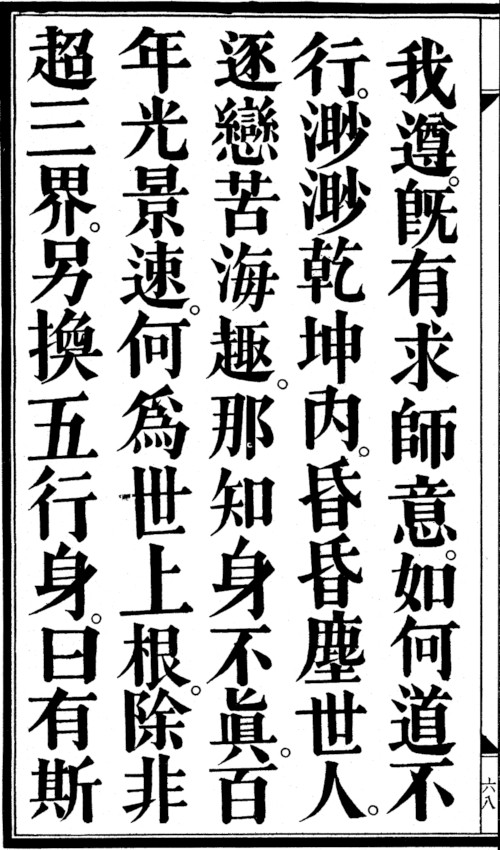 我遵。既有求師意。如何道不
行。渺渺乾坤內。昏昏塵世人。
逐戀苦海趣。那知身不眞。百
年光景速。何爲世上根。除非
超三界。另換五行身。曰有斯
六八